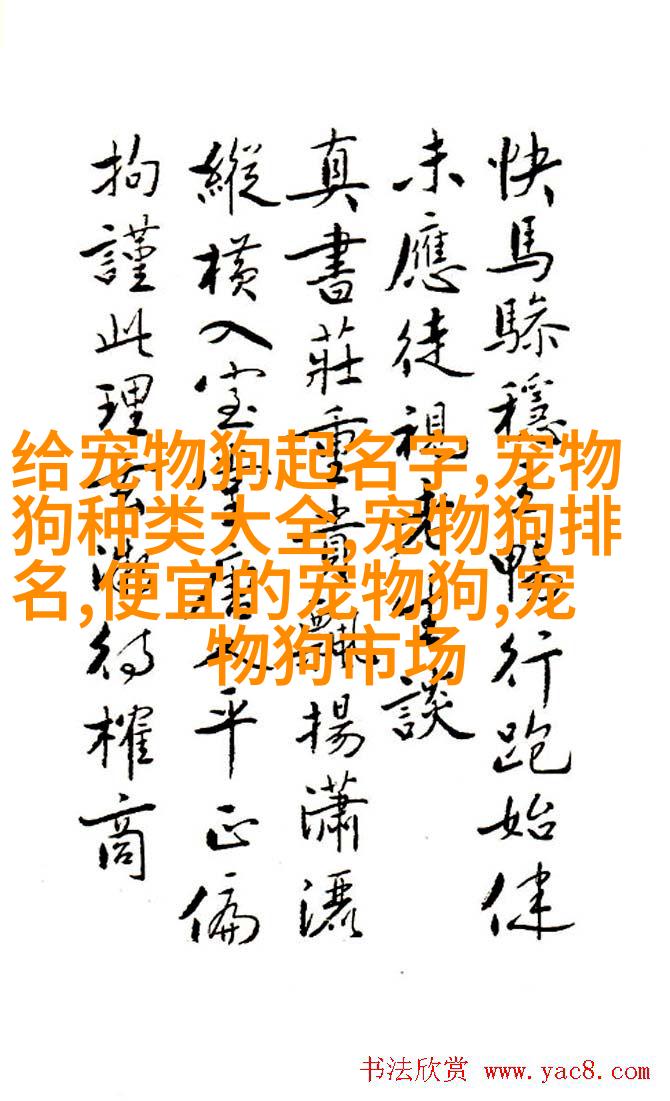 快馬穩行跑始健
未應徒視老生談
真書莊重貴飄揚瀟灑
縱橫入室平正偏
拘謹此理待榷商
给宠物狗起名字,宠物
狗种类大全,宠物狗排
名,便宜的宠物狗,宠
物狗市场
书法欣赏 www.yac8.com